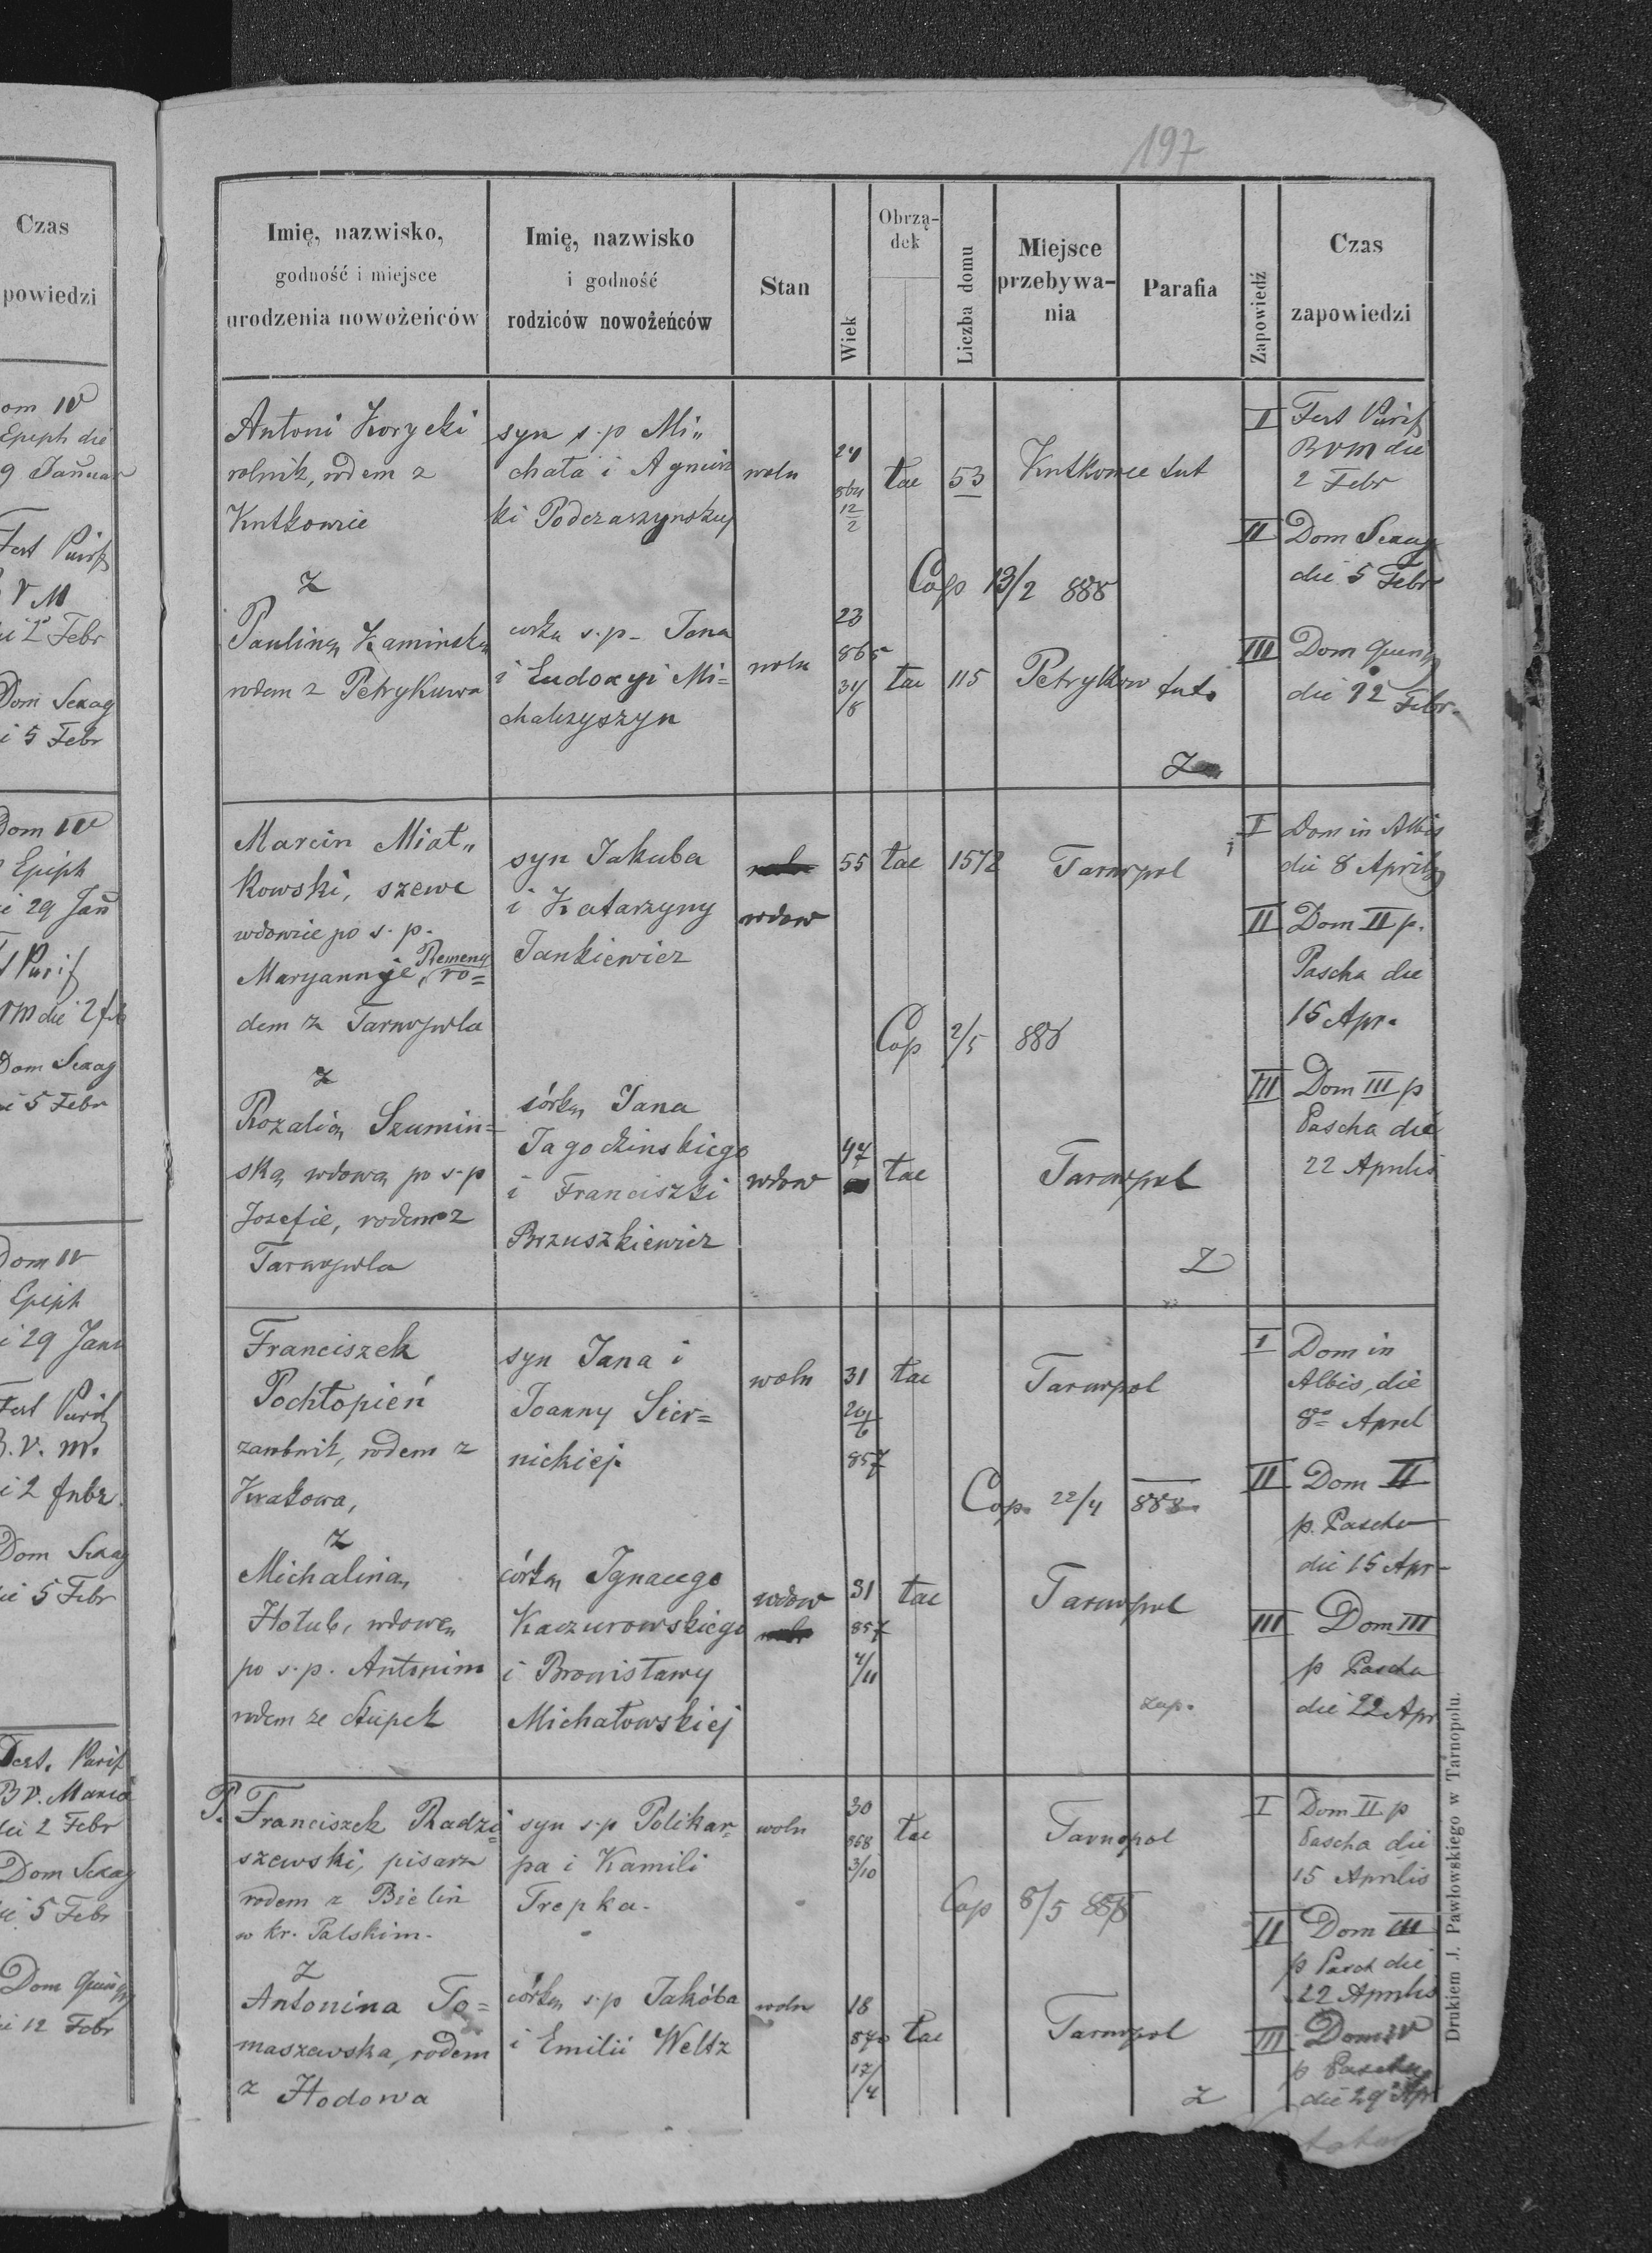 197
Czas
powiedzi
om IV
Epiph die
9 Januar
Fest Purif
V M
2 Febr
Dom Sexag
i 5 Febr
Dom IV
Epiph
i 29 Jan
Purif
VM die 2
Dom Sexag
i 5 Febr
Dom IV
Epiph
i 29 Jan
Fest Purif
B. V. M.
i 2
Dom Sexag
ie 5 Febr
Fest. Purif
B V. Maria
die 2 Febr
Dom Sexag
ie 5 Febr
Dom Quinq
ie 12 Febr
Imię, nazwisko,
godność i miejsce
urodzenia nowożeńców
Imię, nazwisko
i godność
rodziców nowożeńców
Stan
Wiek
Obrzą-
dek
Liczba domu
Miejsce
przebywa-
nia
Parafia
Zapowiedź
Czas
zapowiedzi
Antoni Korycki
rolnik, rodem z
Kutkowie
z
Pauliną Kamińską
rodem z Petrykowa
syn s.p Mi„
chała i Agniesz
ki Podczaszynskiej
córka s.p. Jana
i Eudoxyi Mi=
chalczyszyn
woln
woln
24
864
12
2
23
865
31
/8
łac
łac
53
115
Kutkowce
Petryków
tut
tut.
Cop 13/2 888
I
Fest Purif
BVM die
2 Febr
II
Dom Sexag
die 5 Febr
III
Dom Quinq
die 12 Febr.
Marcin Miat„
kowski, szewc
wdowiec po s. p.
Remeny
Maryannie, ro=
dem z Tarnopola
z
Rozalią Szumin=
ską wdową po s. p
Josefie, rodem z
Tarnopola
syn Jakuba
i Katarzyny
Jankiewicz
córką Jana
Jagodzinskiego
i Franciszki
Brzuszkiewicz
wdow
wdow
55
47
łac
łac
1572
Tarnopol
Tarnopol
Cop 2/5 888
Z
I
Dom in Albis
die 8 Aprilis
II
Dom II p.
Pascha die
15 Apr.
III
Dom III p
Pascha die
22 Aprilis
Franciszek
Pochłopień
zarobnik, rodem z
Krakowa,
z
Michaliną
Hołub, wdową
po s. p. Antonim
rodem ze Słupek
syn Jana i
Joanny Sier=
nickiej
córką Ignacego
Kaczurowskiego
i Bronisławy
Michałowskiej
woln
wdow
31
857
31
857
4/11
łac
łac
Tarnopol
Tarnopol
Cop. 22/4 888
zap.
I
Dom in
Albis, die
8 April
II
Dom II
p. Pascha
die 15 Apr
III
Dom III
p Pascha
die 22 Apr
P. Franciszek Radzi=
szewski, pisarz
rodem z Bielin
w kr. Polskim.
z
Antonina To=
maszewska, rodem
z Hodowa
syn s.p Polikar=
pa i Kamili
Trepka.
córką s.p Jakóba
i Emilii Weltz
woln
woln
30
868
3/10
18
870
17
/4
łac
łac
Tarnopol
Tarnopol
Cop 8/5 888
Z
I
Dom II p
Pascha die
15 Aprilis
II
Dom III
p Pasch die
22 Aprilis
III
Dom IV
p Pascha
die 29 Apr
Drukiem J. Pawłowskiego w Tarnopolu.